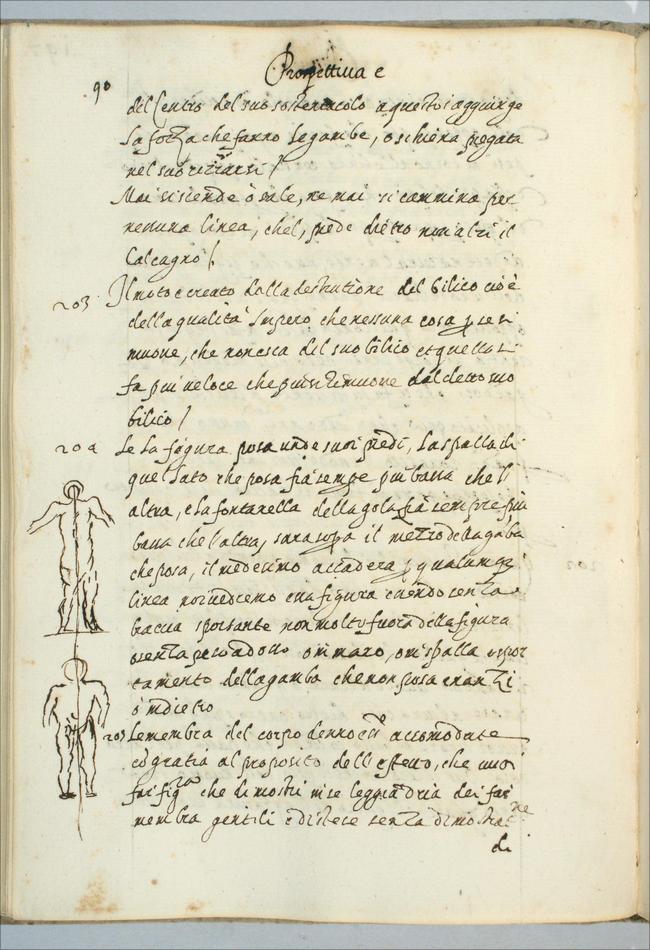 90
Prospettiua e
del Centro del suo sostentacolo a questo s'aggiunge
la forza che fanno le gambe, o schiena piegata
nel suo rizzarsi /
Mai si scende ò sale, ne mai si cammina per
nessuna linea, che'l piede dietro non alzi il
Calcagno /.
203 Il moto e creato dalla destrutione del bilico cioè
della qualità Impero che nessuna cosa p se si
muoue, che non esca del suo bilico et quello si
fa piu ueloce che piu si rimuoue dal detto suo
bilico /
204 Se la figura posa un de suoi piedi, la spalla di
quel lato che posa fia sempre piu bassa che l'
altra, e la fontanella della gola fia sempre piu
bassa che l'altra, sara sopra il mezzo della gaba
che posa, il medesimo accadera p qualunq;
linea noi uedremo una figura essendo senza
bracia sportante non molto fuora della figura
o senza peso adosso o in mano, o in spalla o spor
tamento della gamba che non posa inanzi
ò indietro
205 Le membra del corpo denno eer accomodate
cō gratia al proposito dell effetto, che uuoi
far fig.ra che dimostri in se leggiadria dei far
membra gentili e distese senza dimostratne
di